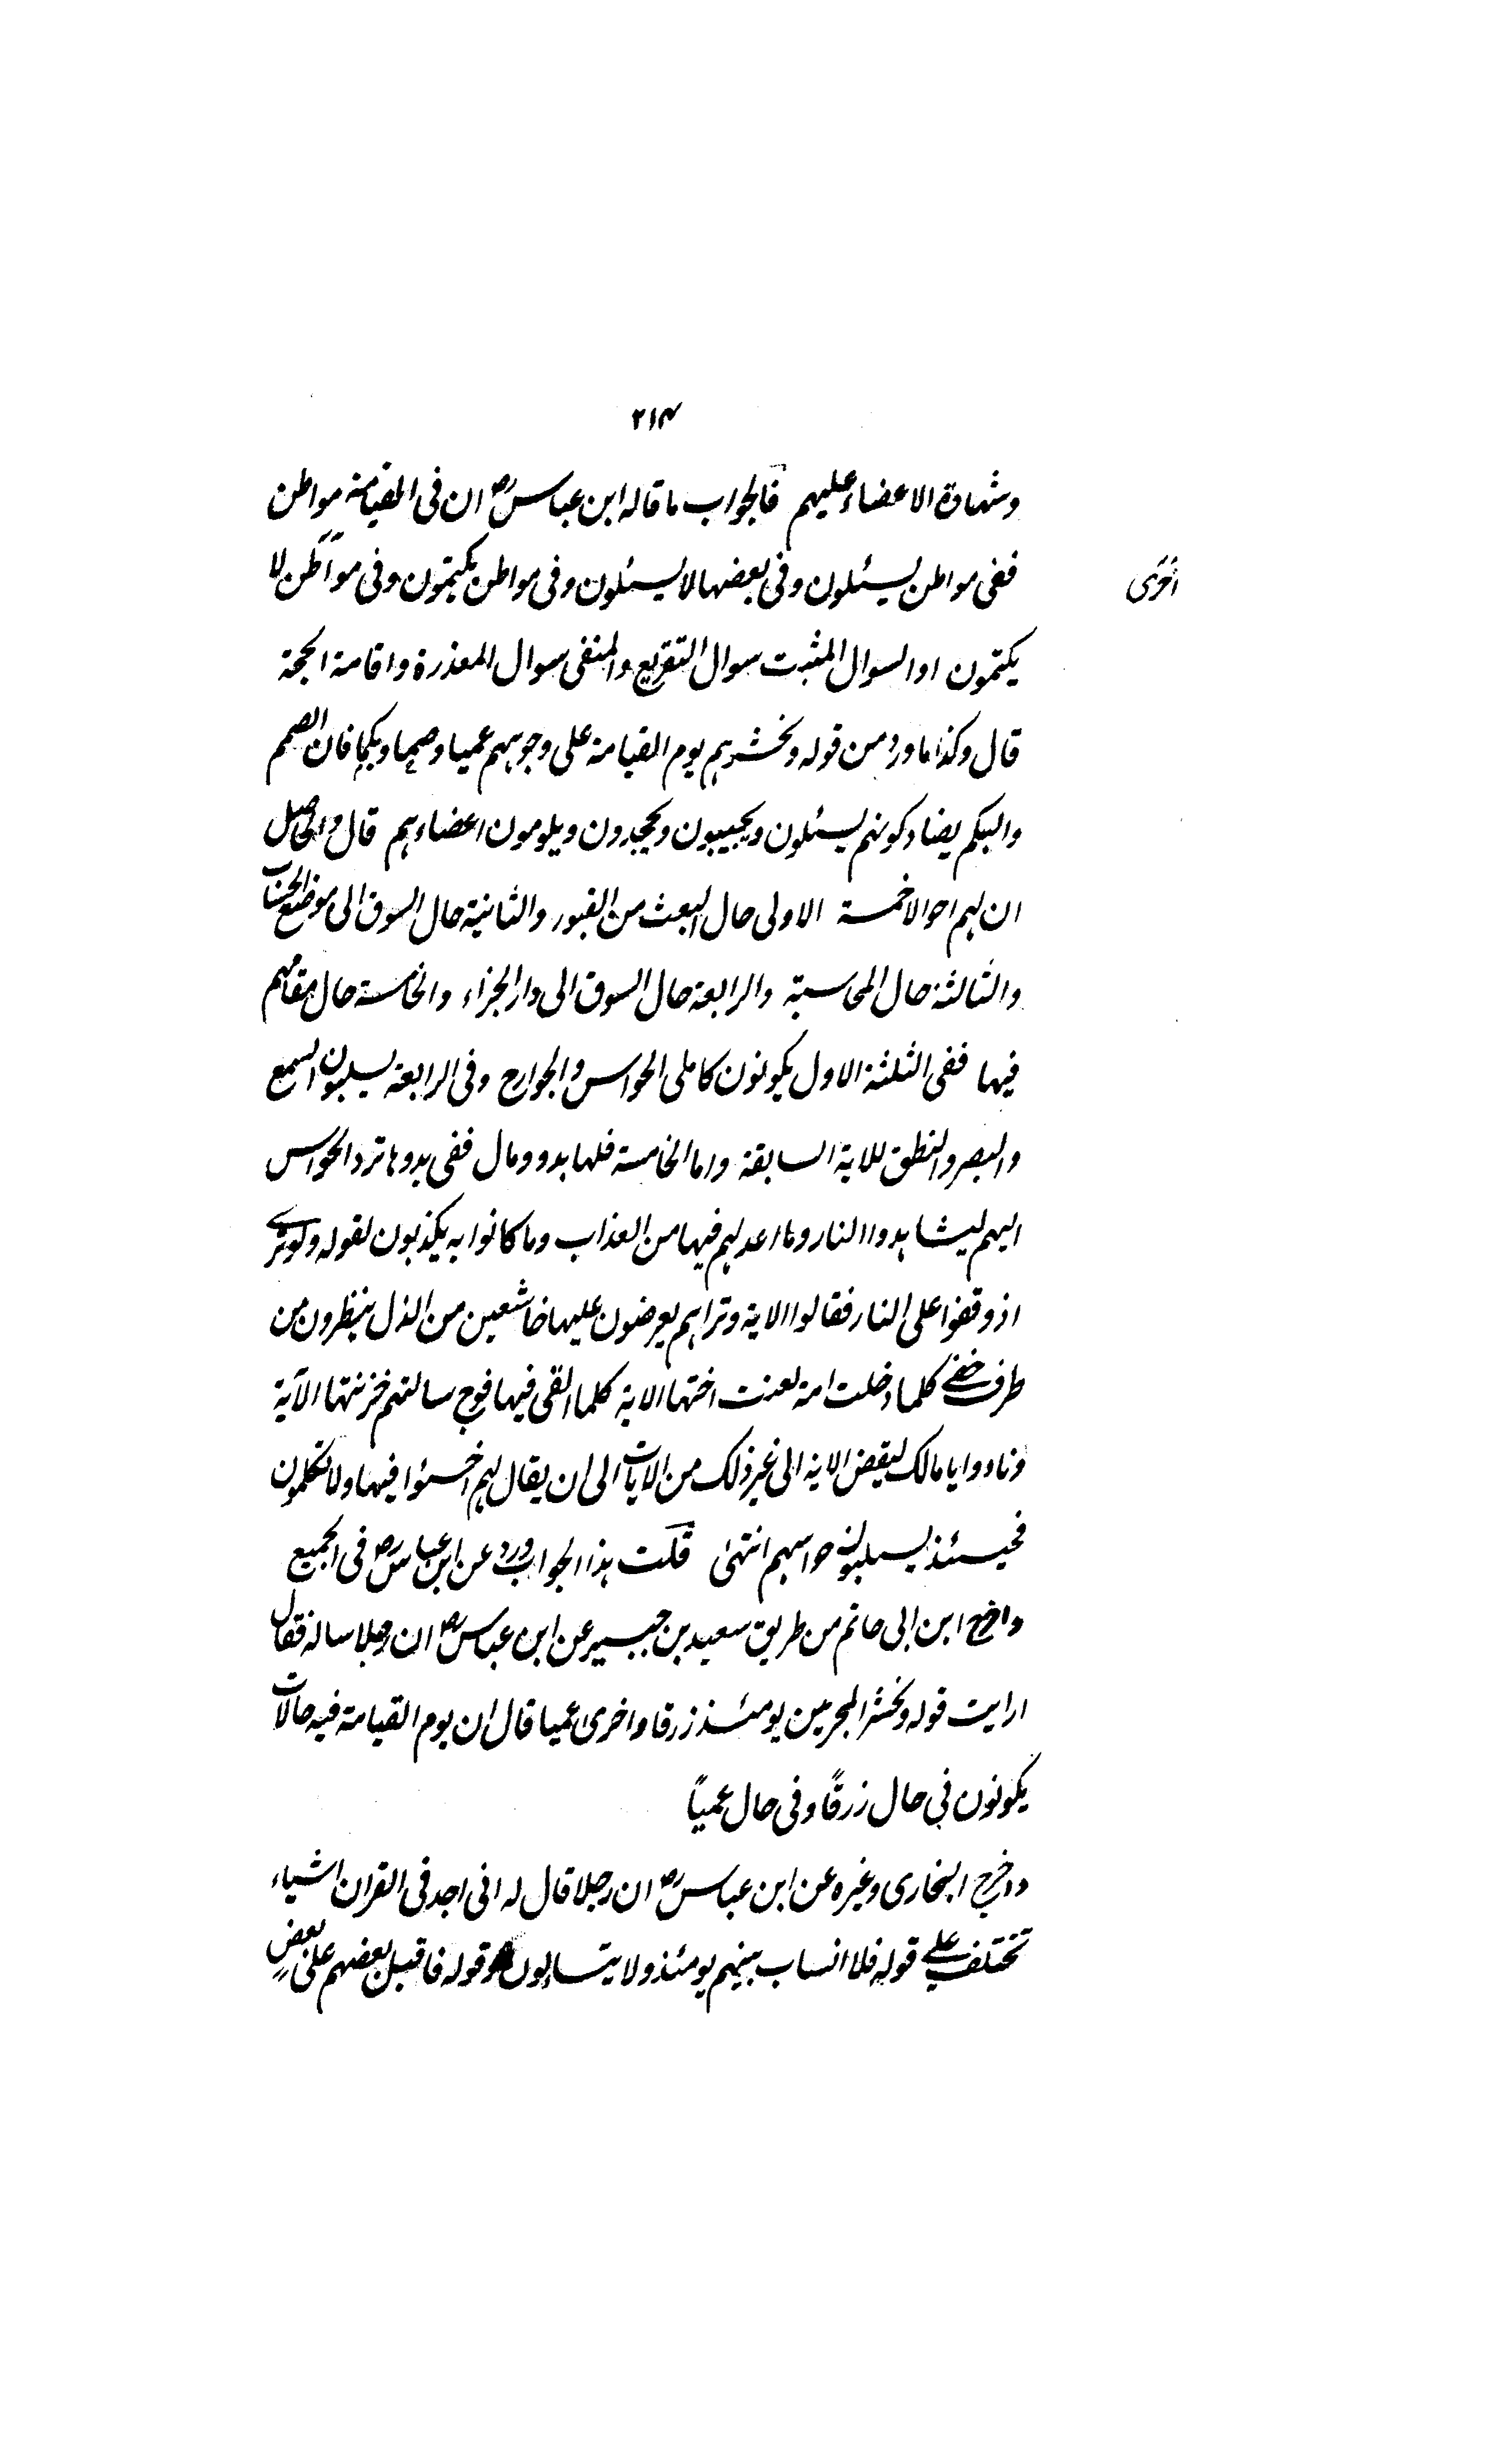 ٢١٤
وشهادة الاعضاء عليهم فالجواب ما قاله ابن عباس رض ان فى القيامة مواطن
ففى مواطن يسئلون وفى بعضها لا يسئلون وفى مواطن يكتمون وفى مواطن لا
اخرى
يكتمون او السوال المثبت سوال التقريع والمنفى سوال المعذرة واقامة الحجة
قال وكذا ما ورد من قوله ونحشرهم يوم القيامة على وجوههم عميا وصما وبكما فان الصم
والبكم يضاد كونهم يسئلون ويجيبون ويجحدون ويلومون اعضاءهم قال والحاصل
ان لهم احوالا خمسة الاولى حال البعث من القبور والثانية حال السوق الى موضع الحساب
والثالثة حال المحاسبة والرابعة حال السوق الى دار الجزاء والخامسة حال مقامهم
فيها ففى الثلثة الاول يكونون كاملى الحواس والجوارح وفى الرابعة يسلبون السمع
والبصر والنطق للاية السابقة واما الخامسة فلها بدو ومال ففى بدوها ترد الحواس
اليهم ليشاهدوا النار وما اعد لهم فيها من العذاب وما كانوا به يكذبون لقوله ولو ترى
اذ وقفوا على النار فقالوا الاية وتراهم يعرضون عليها خاشعين من الذل ينظرون من
طرف خفى كلما دخلت امة لعنت اختها الاية كلما القى فيها فوج سالتهم خزنتها الآية
ونادوا يا مالك ليقض الاية الى غير ذلك من الايات الى ان يقال لهم اخسؤا فيها ولا تكلمون
فحينئذ يسلبون حواسهم انتهى قلت هذا الجواب ورد عن ابن عباس رض فى الجميع
واخرج ابن ابى حاتم من طريق سعيد بن جبير عن ابن عباس رض ان رجلا ساله فقال
ارايت قوله ونحشر المجرمين يومئذ زرقا واخرى عميا قال ان يوم القيامة فيه حالات
يكونون فى حال زرقًا وفى حال عميًا
واخرج البخارى وغيره عن ابن عباس رض ان رجلا قال له انى اجد فى القران اشياء
تختلف على قوله فلا انساب بينهم يومئذ ولا يتسالون وقوله فاقبل بعضهم على بعضٍ